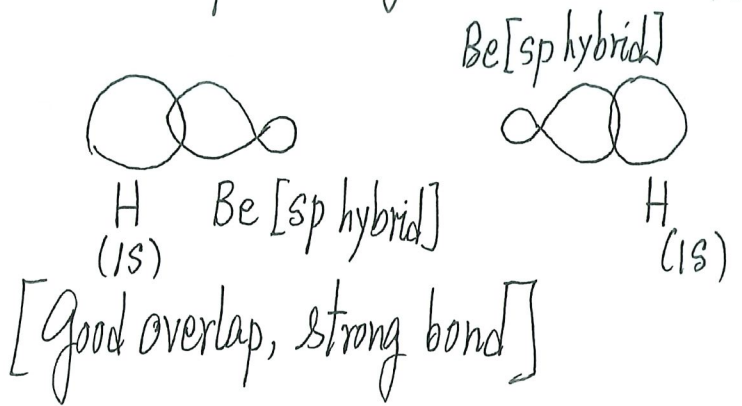 Be[sp hybrid]
H Be [sp hybrid] H
(1S) (1S)
[Good overlap, strong bond]